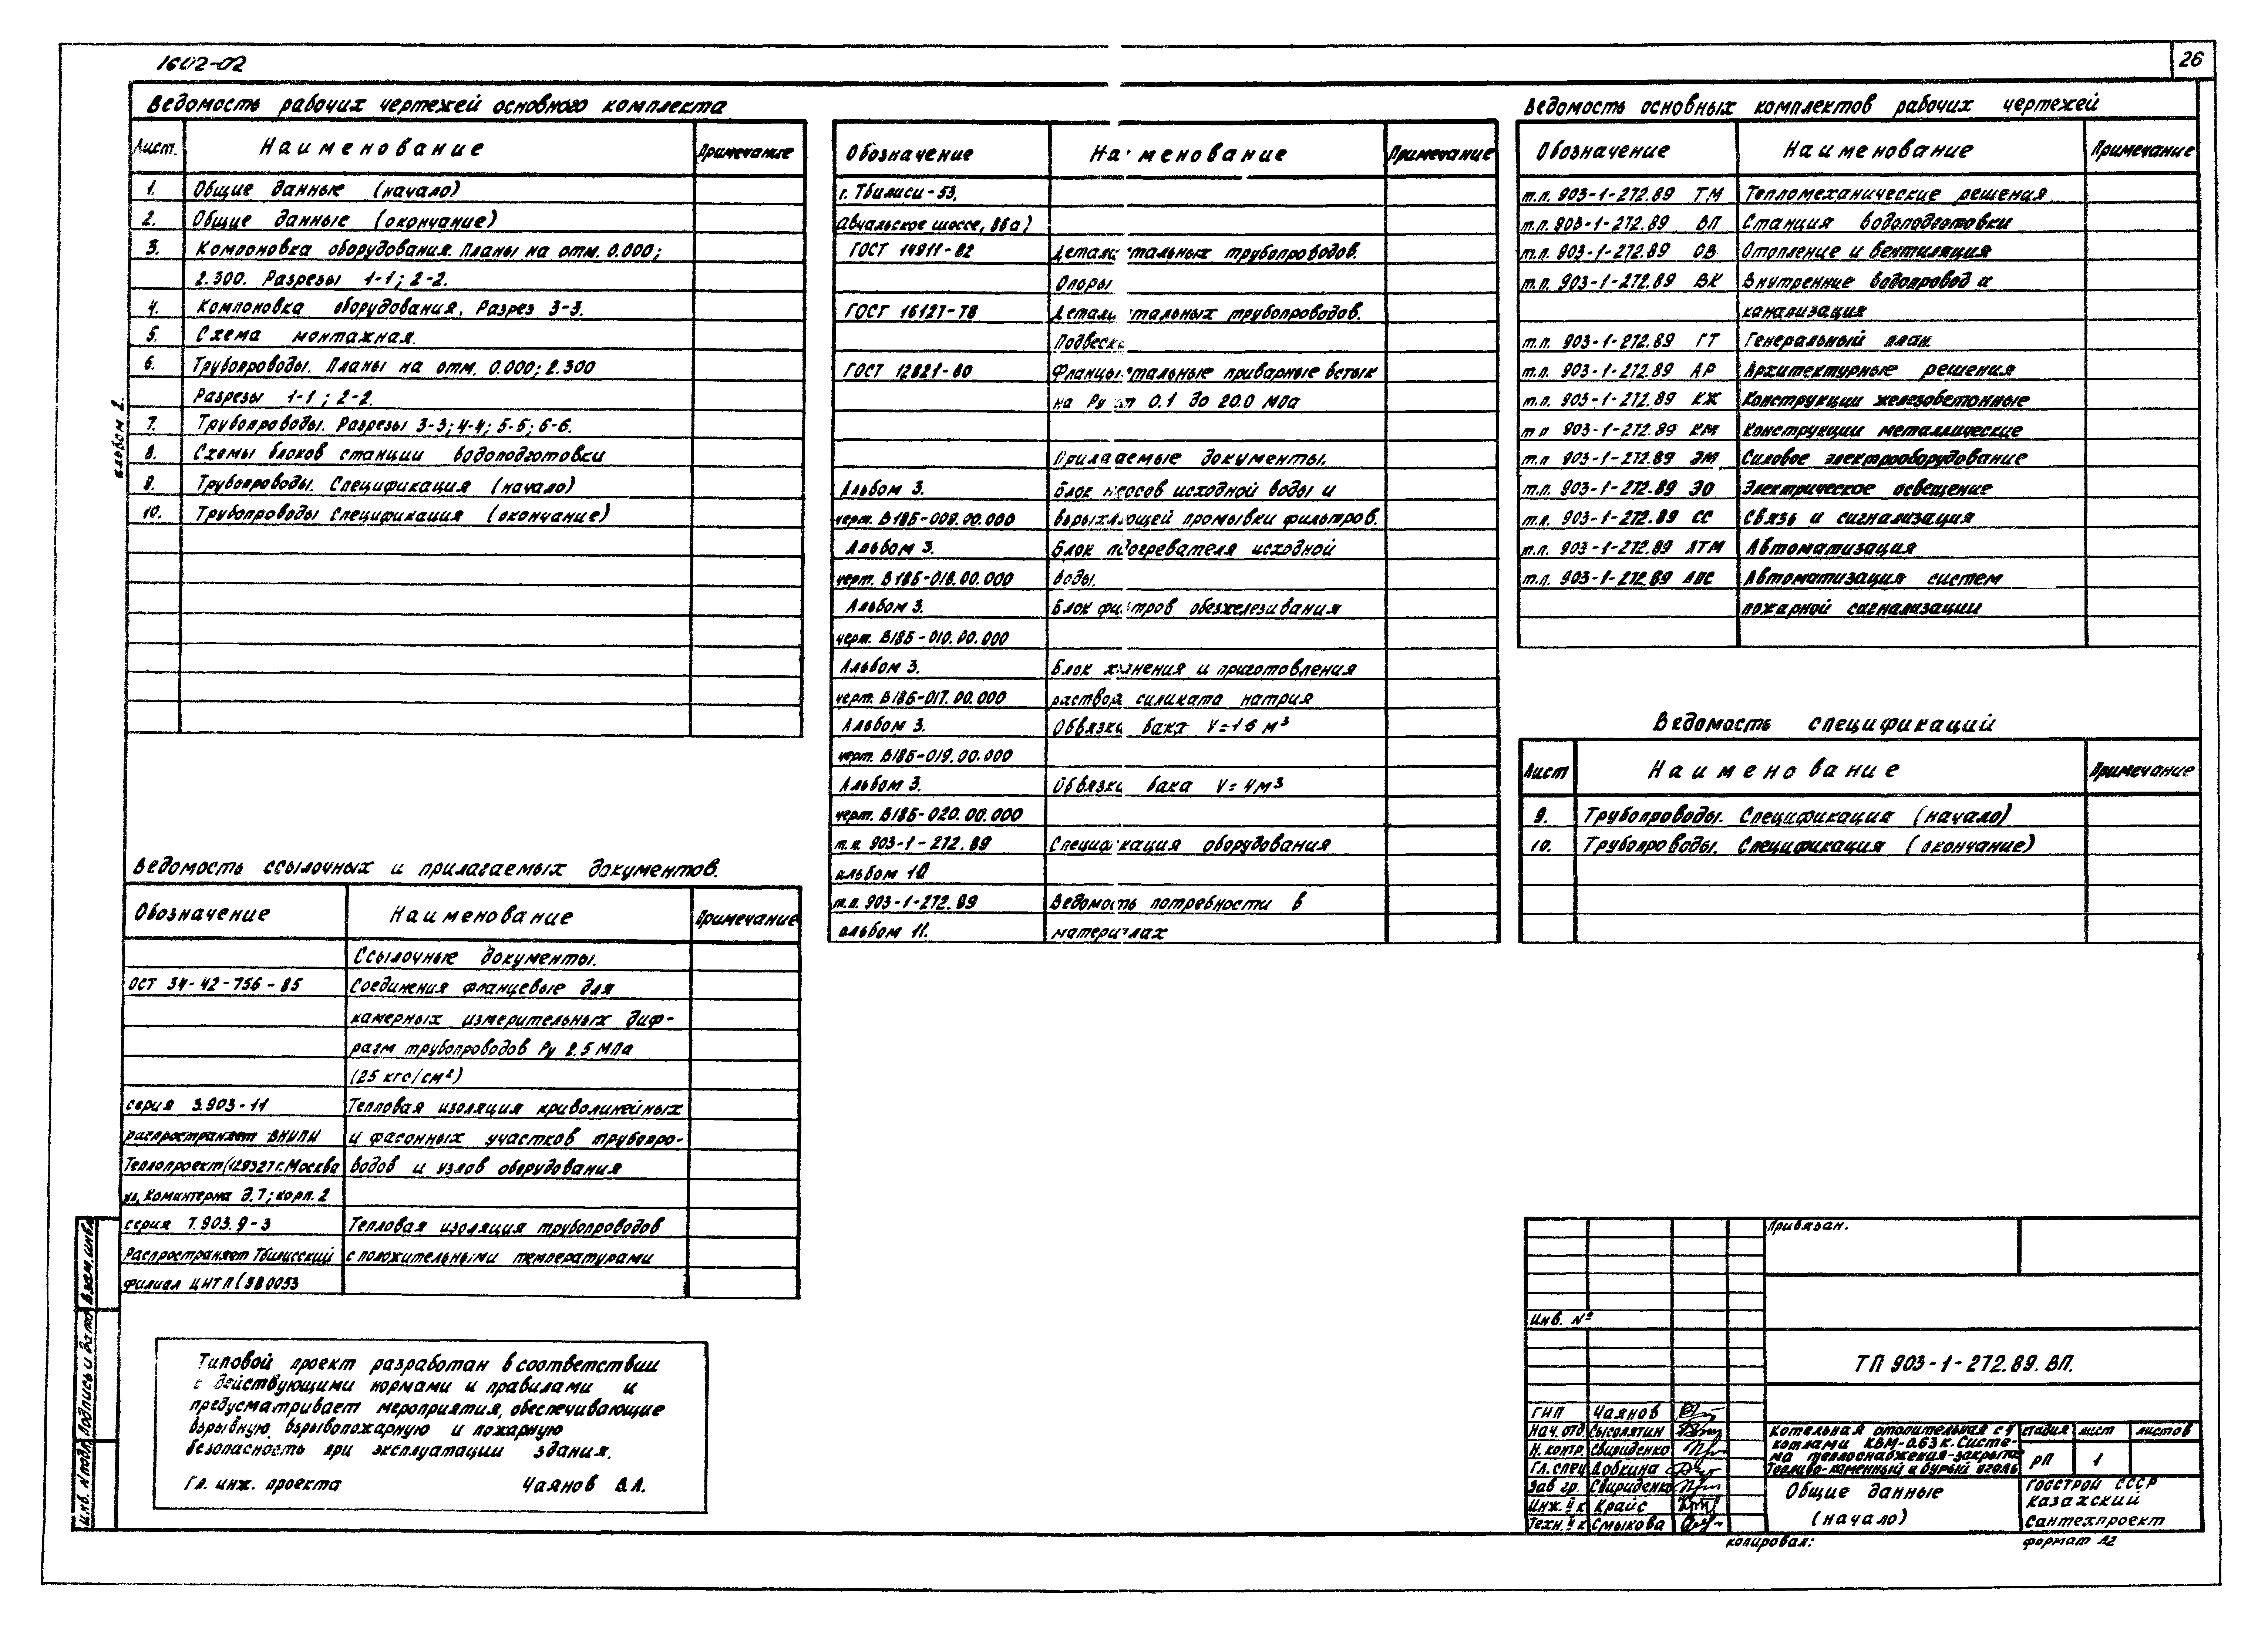 1602-02
26
Ведомость рабочих чертежей основного комплекта
Лист. Наименование Примечание
1. Общие данные (начало)
2. Общие данные (окончание)
3. Компоновка оборудования. Планы на отм. 0.000;
2.300. Разрезы 1-1; 2-2.
4. Компоновка оборудования. Разрез 3-3.
5. Схема монтажная.
6. Трубопроводы. Планы на отм. 0.000; 2.300
Разрезы 1-1; 2-2.
7. Трубопроводы. Разрезы 3-3; 4-4; 5-5; 6-6.
8. Схемы блоков станции водоподготовки
9. Трубопроводы. Спецификация (начало)
10. Трубопроводы Спецификация (окончание)
Ведомость ссылочных и прилагаемых документов.
Обозначение Наименование Примечание
Ссылочные документы.
ОСТ 34-42-756-85 Соединения фланцевые для
камерных измерительных диф-
рагм трубопроводов Ру 2.5 МПа
(25 кгс/см²)
серия 3.903-11 Тепловая изоляция криволинейных
распространяет ВНИПИ и фасонных участков трубопро-
Теплопроект (129327 г. Москва водов и узлов оборудования
ул. Коминтерна д. 7; корп. 2
серия 7.903.9-3 Тепловая изоляция трубопроводов
Распространяет Тбилисский с положительными температурами
филиал ЦИТП (380053
Типовой проект разработан в соответствии
с действующими нормами и правилами и
предусматривает мероприятия, обеспечивающие
взрывную, взрывопожарную и пожарную
безопасность при эксплуатации здания.
Гл. инж. проекта Чаянов В.А.
Обозначение Наименование Примечание
г. Тбилиси-53,
Авчальское шоссе, 86а)
ГОСТ 14911-82 Детали стальных трубопроводов.
Опоры
ГОСТ 16127-78 Детали стальных трубопроводов.
Подвески
ГОСТ 12821-80 Фланцы стальные приварные встык
на Ру от 0.1 до 20.0 МПа
Прилагаемые документы.
Альбом 3. Блок насосов исходной воды и
черт. В185-009.00.000 взрыхляющей промывки фильтров.
Альбом 3. Блок подогревателя исходной
черт. В185-018.00.000 воды.
Альбом 3. Блок фильтров обезжелезивания
черт. В185-010.00.000
Альбом 3. Блок хранения и приготовления
черт. В185-017.00.000 раствора силиката натрия
Альбом 3. Обвязка бака V=16 м³
черт. В185-019.00.000
Альбом 3. Обвязка бака V=4м³
черт. В185-020.00.000
т.п. 903-1-272.89 Спецификация оборудования
альбом 10
т.п. 903-1-272.89 Ведомость потребности в
альбом 11. материалах
Ведомость основных комплектов рабочих чертежей
Обозначение Наименование Примечание
т.п. 903-1-272.89 ТМ Тепломеханические решения
т.п. 903-1-272.89 ВП Станция водоподготовки
т.п. 903-1-272.89 ОВ Отопление и вентиляция
т.п. 903-1-272.89 ВК Внутренние водопровод и
канализация
т.п. 903-1-272.89 ГТ Генеральный план
т.п. 903-1-272.89 АР Архитектурные решения
т.п. 903-1-272.89 КЖ Конструкции железобетонные
т п 903-1-272.89 КМ Конструкции металлические
т.п 903-1-272.89 ЭМ Силовое электрооборудование
т.п. 903-1-272.89 ЭО Электрическое освещение
т.п. 903-1-272.89 СС Связь и сигнализация
т.п. 903-1-272.89 АТМ Автоматизация
т.п. 903-1-272.89 АПС Автоматизация систем
пожарной сигнализации
Ведомость спецификаций
Лист Наименование Примечание
9. Трубопроводы. Спецификация (начало)
10. Трубопроводы. Спецификация (окончание)
Привязан.
Инв. №
ТП 903-1-272.89. ВП.
ГИП Чаянов
Нач. отд Сысолятин
Н. контр. Свириденко
Гл. спец Добкина
Зав гр. Свириденко
Инж. II к Крайс
Техн. II к Смыкова
Котельная отопительная с 4
котлами КВМ-0.63 к. Систе-
ма теплоснабжения-закрытая
Топливо-каменный и бурый уголь
стадия лист листов
РП 1
Общие данные
(начало)
ГОССТРОЙ СССР
Казахский
Сантехпроект
копировал: формат А2
альбом 2.
Взам. инв.
Подпись и дата
Инв. N подл